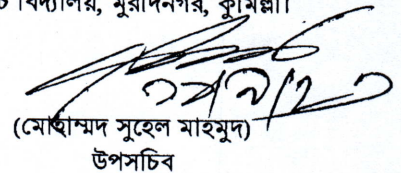 বিদ্যালয়, মুরাদনগর, কুমিল্লা।
(মোহাম্মদ সুহেল মাহমুদ)
উপসচিব